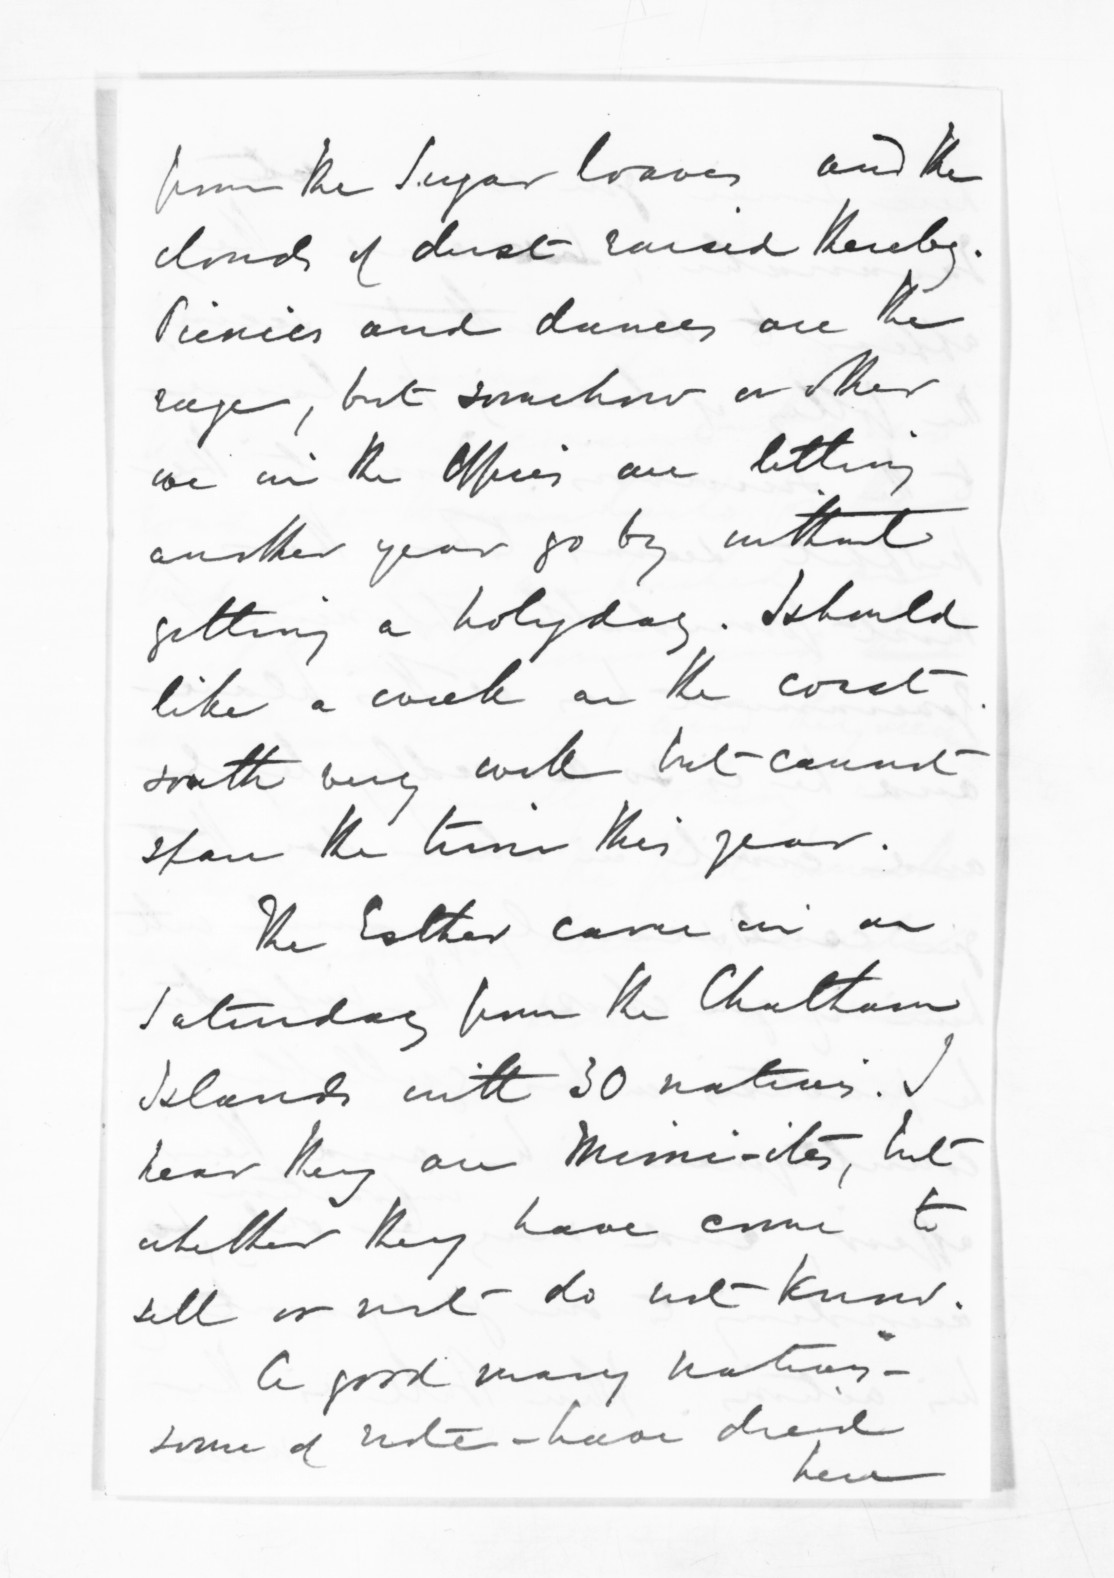 from the Sugar loaves and the
clouds of dust raised thereby.
Picnics and dances are the
rage, but somehow or other
we in the Offices are letting
another year go by without
getting a holyday. I should
like a week on the coast
south very well but cannot
spare the time this year.
The Esther came in on
Saturday from the Chatham
Islands with 30 natives. I
hear they are Mimi-ites, but
whether they have come to
sell or not do not know.
A good many natives -
some of note - have died
here